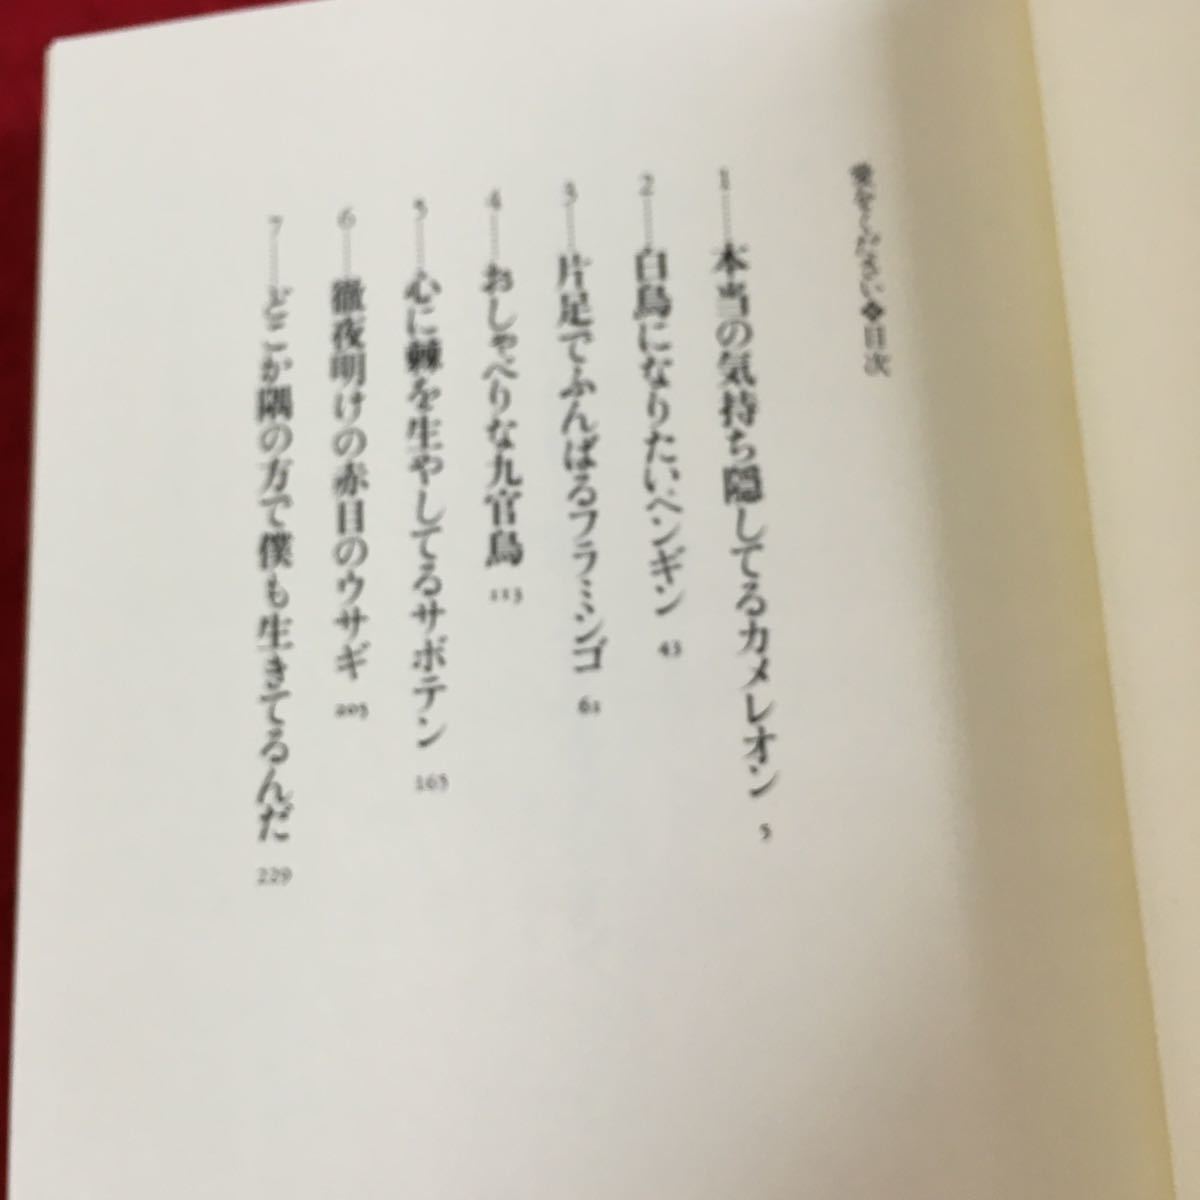 愛をください❖目次
1……本当の気持ち隠してるカメレオン 5
2……白鳥になりたいペンギン 43
3……片足でふんばるフラミンゴ 61
4……おしゃべりな九官鳥 113
5……心に棘を生やしてるサボテン 165
6……徹夜明けの赤目のウサギ 205
7……どこか隅の方で僕も生きてるんだ 229